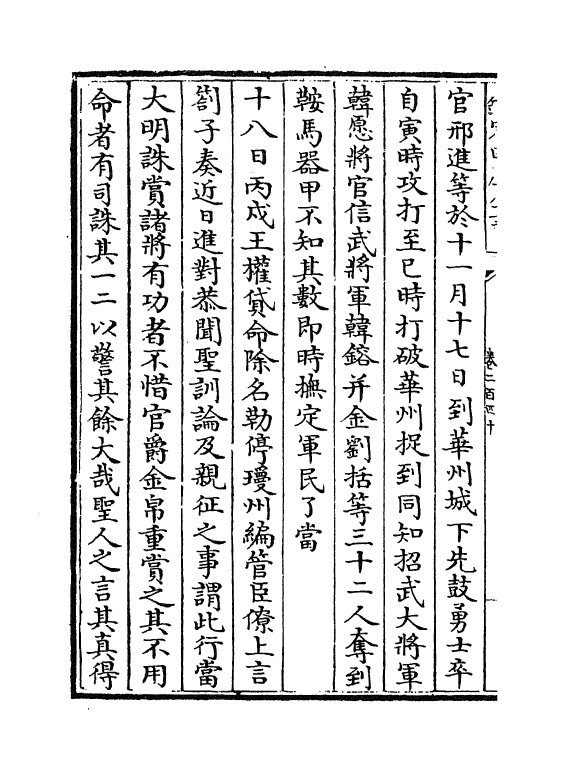 官邢進等於十一月十七日到華州城下先鼓勇士卒
自寅時攻打至巳時打破華州捉到同知招武大將軍
韓愿將官信武將軍韓鎔并金劉括等三十二人奪到
鞍馬器甲不知其數即時撫定軍民了當
十八日丙戍王權貸命除名勒停瓊州編管臣僚上言
劄子奏近日進對恭聞聖訓論及親征之事謂此行當
大明誅賞諸將有功者不惜官爵金帛重賞之其不用
命者有司誅其一二以警其餘大哉聖人之言其真得
卷二百四十